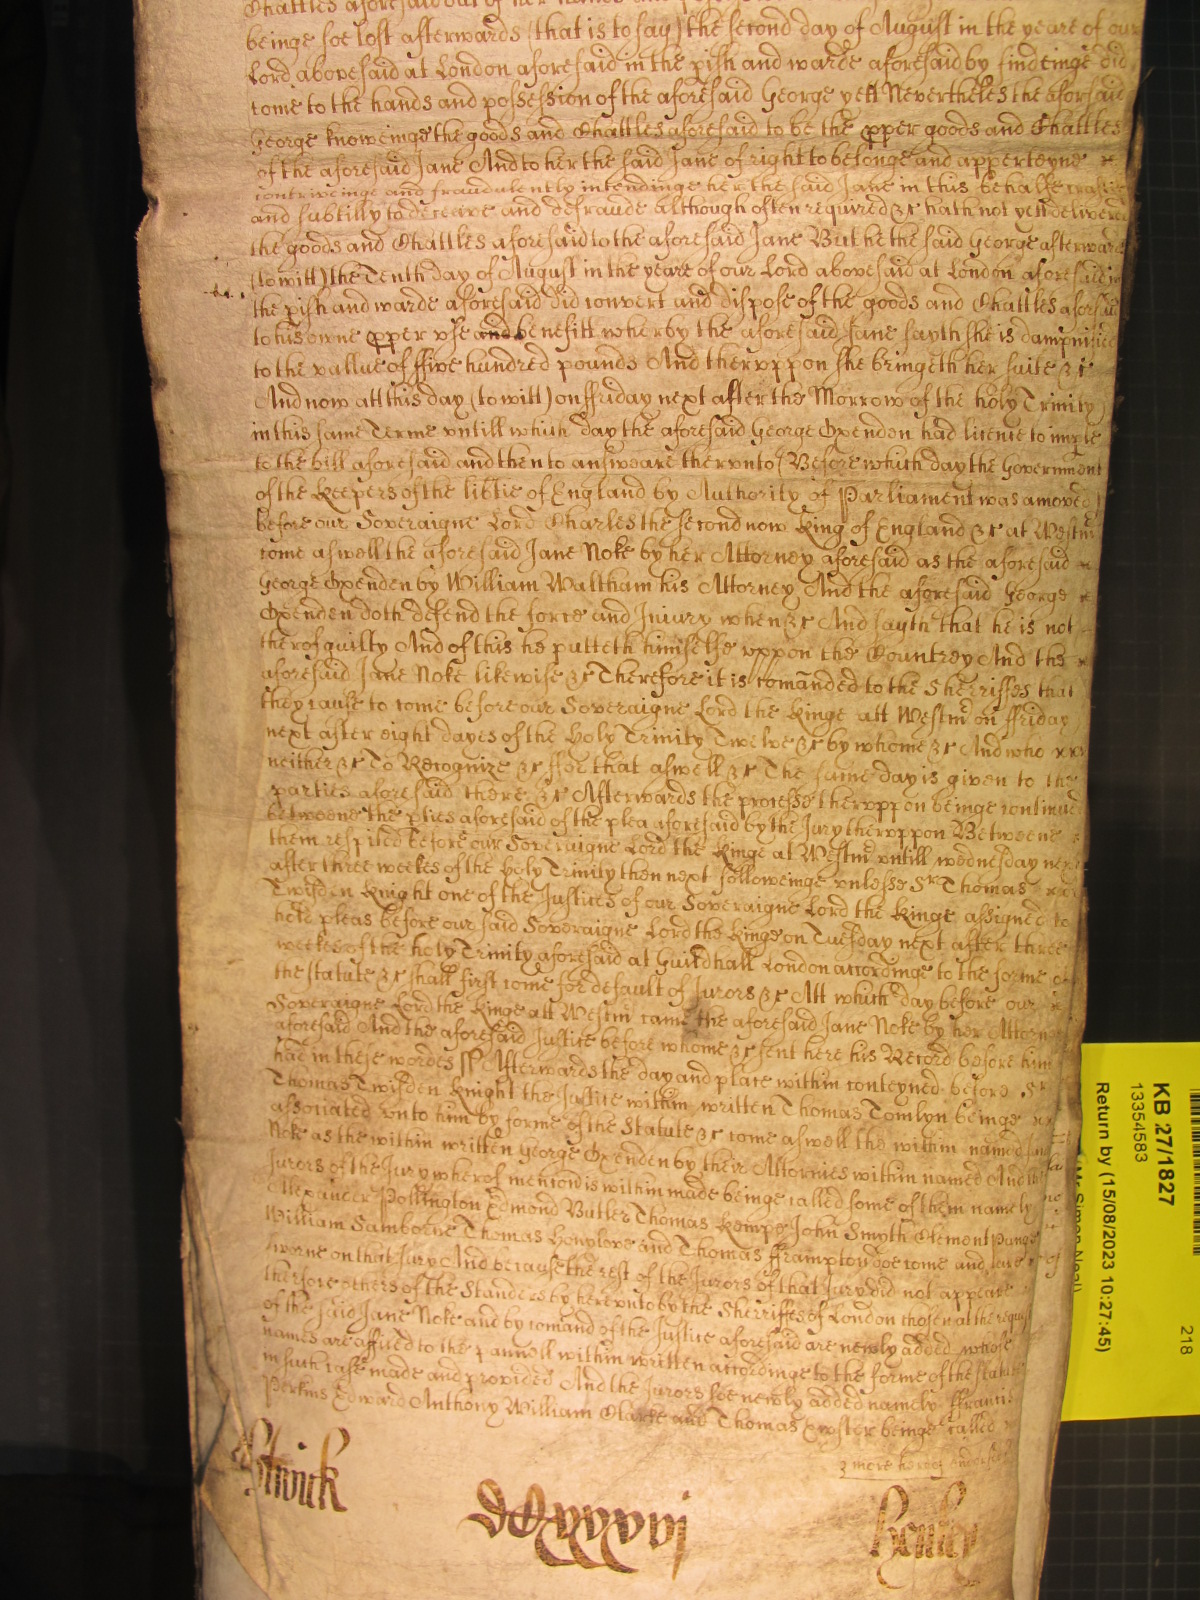 Chattles aforesaid out of her hands and
beinge soe lost afterwards (that is to say) the second day of August in the yeare of our
Lord abovesaid at London aforesaid in the pish and warde aforesaid by findeinge did
come to the hands and possession of the aforesaid George yett Nevertheles the aforsaid
George knoweinge the goods and Chattles aforesaid to be the pper goods and Chattles
of the aforesaid Jane And to her the said Jane of right to belonge and apperteyne
contriveinge and fraudulently intendinge her the said Jane in this behalfe craftie
and subtilly to deceive and defraude although often required &c hath not yett delivered
the goods and Chattles aforesaid to the aforesaid Jane But he the said George afterwards
(to witt) the Tenth day of August in the yeare of our Lord abovesaid at London aforesaid in
the pish and warde aforesaid did convert and dispose of the goods and Chattles aforsaid
to his owne pper use and benefitt wherby the aforesaid Jane sayth she is dampnified
to the vallue of ffive hundred pounds And theruppon she bringeth her suite &c
And now att this day (to witt) on ffriday next after the Morrow of the holy Trinity
in this same Terme untill which day the aforesaid George Oxenden had licence to imple
to the bill aforesaid and then to answeare therunto (Before which day the Government
of the Keepers of the libtie of England by Authority of Parliament was amoved)
before our Soveraigne Lord Charles the second now King of England &c at Westmr
come aswell the aforesaid Jane Noke by her Attorney aforesaid as the aforesaid
George Oxenden by William Waltham his Attorney And the aforesaid George
Oxenden doth defend the force and Injury when &c And sayth that he is not
therof guilty And of this he putteth himselfe uppon the Countrey And the
aforesaid Jane Noke likewise &c Therefore it is comanded to the Sherriffes that
they cause to come before our Soveraigne Lord the Kinge att Westmr on ffriday
next after eight dayes of the Holy Trinity Twelve &c by whome &c And who
neither &c To Recognize &c ffor that aswell &c The same day is given to the
parties aforesaid there &c Afterwards the processe theruppon beinge continued
betweene the pties aforesaid of the plea aforesaid by the Jury theruppon Betweene
them respited before our Soveraigne Lord the Kinge at Westmr untill wednesday next
after three weekes of the Holy Trinity then next followeinge unlesse Sr Thomas
Twisden Knight one of the Justices of our Soveraigne Lord the Kinge assigned to
hold pleas before our said Soveraigne Lord the Kinge on Tuesday next after three
weekes of the holy Trinity aforesaid at Guildhall London accordinge to the forme of
the statute &c shall first come for default of Jurors &c Att which day before our
Soveraigne Lord the Kinge att Westmr came the aforesaid Jane Noke by her Attorn
aforesaid And the aforesaid Justice before whome &c sent here his Record before him
had in these wordes ss Afterwards the day and place within conteyned before Sr
Thomas Twisden Knight the Justice within written Thomas Tomlyn beinge
associated unto him by forme of the Statute &c come aswell the within named Jane
Noke as the within written George Oxenden by their Attornies within named And the
Jurors of the Jury wherof mencion is within made beinge called some of them namely
Allexander Pollington Edmond Butler Thomas Kempe John Smyth Clement
William Samborne Thomas Honylove and Thomas fframpton doe come and are
sworne on that Jury And because the rest of the Jurors of that Jury did not appeare
therfore others of the Standers by herunto by the Sherriffes of London chosen at the request
of the said Jane Noke and by comand of the Justice aforesaid are newly added whose
names are affiled to the pannell within written accordinge to the forme of the statute
in such case made and provided And the Jurors soe newly added namely ffrancis
Perkins Edward Anthony William Clarke and Thomas beinge called
more hereof
DCxxxvj
Henley
KB 27/1827
13354583
Return by (15/08/2023 10:27:45)
218